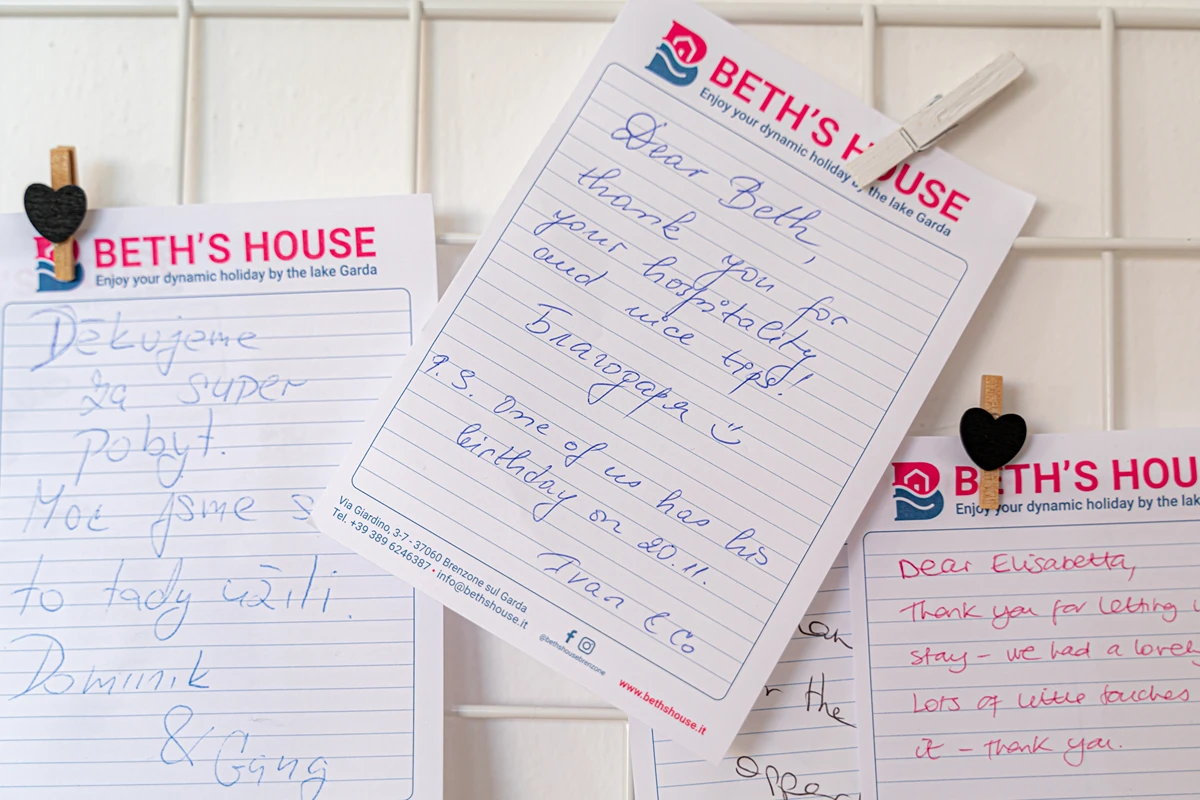 BETH'S HOUSE
Enjoy your dynamic holiday by the lake Garda
Děkujeme
za super
pobyt.
Moc jsme s
to tady užili.
Dominik
& Gang
BETH'S HOUSE
Enjoy your dynamic holiday by the lake Garda
Dear Beth,
thank you for
your hospitality
and nice tips!
Благодаря
P.S. one of us has his
birthday on 20.11.
Ivan & Co
Via Giardino, 3-7 - 37060 Brenzone sul Garda
Tel. +39 389 6246387 • info@bethshouse.it
@bethshousebrenzone
www.bethshouse.it
the
BETH'S HOU
Enjoy your dynamic holiday by the lak
Dear Elisabetta,
Thank you for letting
stay - we had a lovel
Lots of little touches
it - thank you.